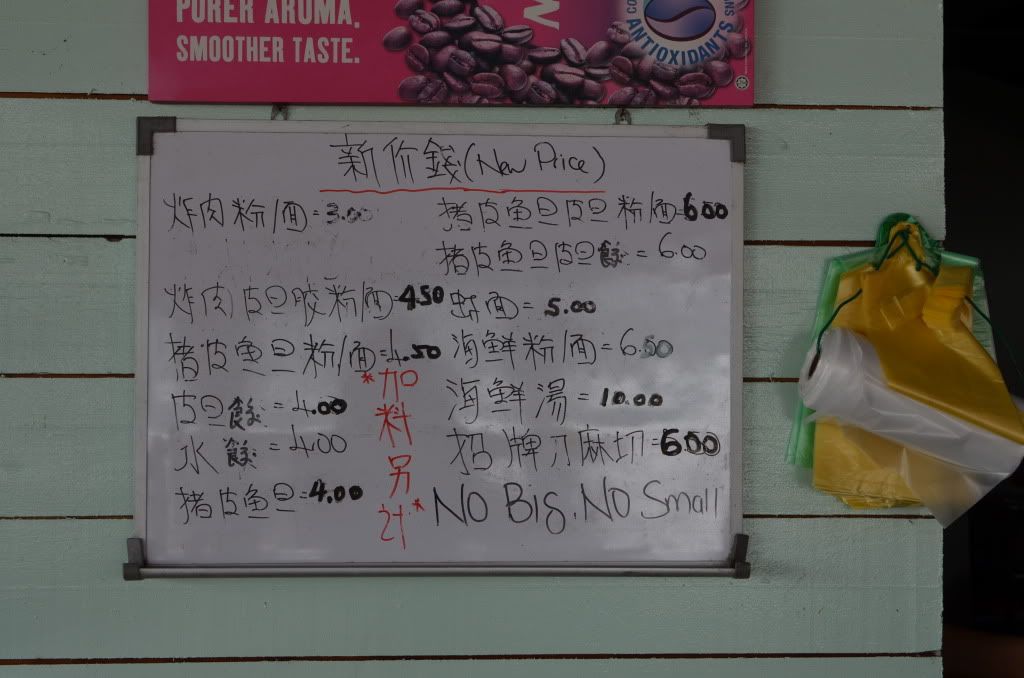 PURER AROMA.
SMOOTHER TASTE.
ANTIOXIDANTS
新价錢(New Price)
炸肉粉/面=3.00
炸肉皮旦胶粉/面=4.50
猪皮魚旦粉/面=4.50
皮旦餃=4.00
水餃=4.00
猪皮魚旦=4.00
*加料另计*
猪皮魚旦皮旦粉/面=6.00
猪皮魚旦皮旦餃=6.00
面=5.00
海鮮粉/面=6.50
海鮮湯=10.00
招牌刀麻切=6.00
NO Big, NO Small